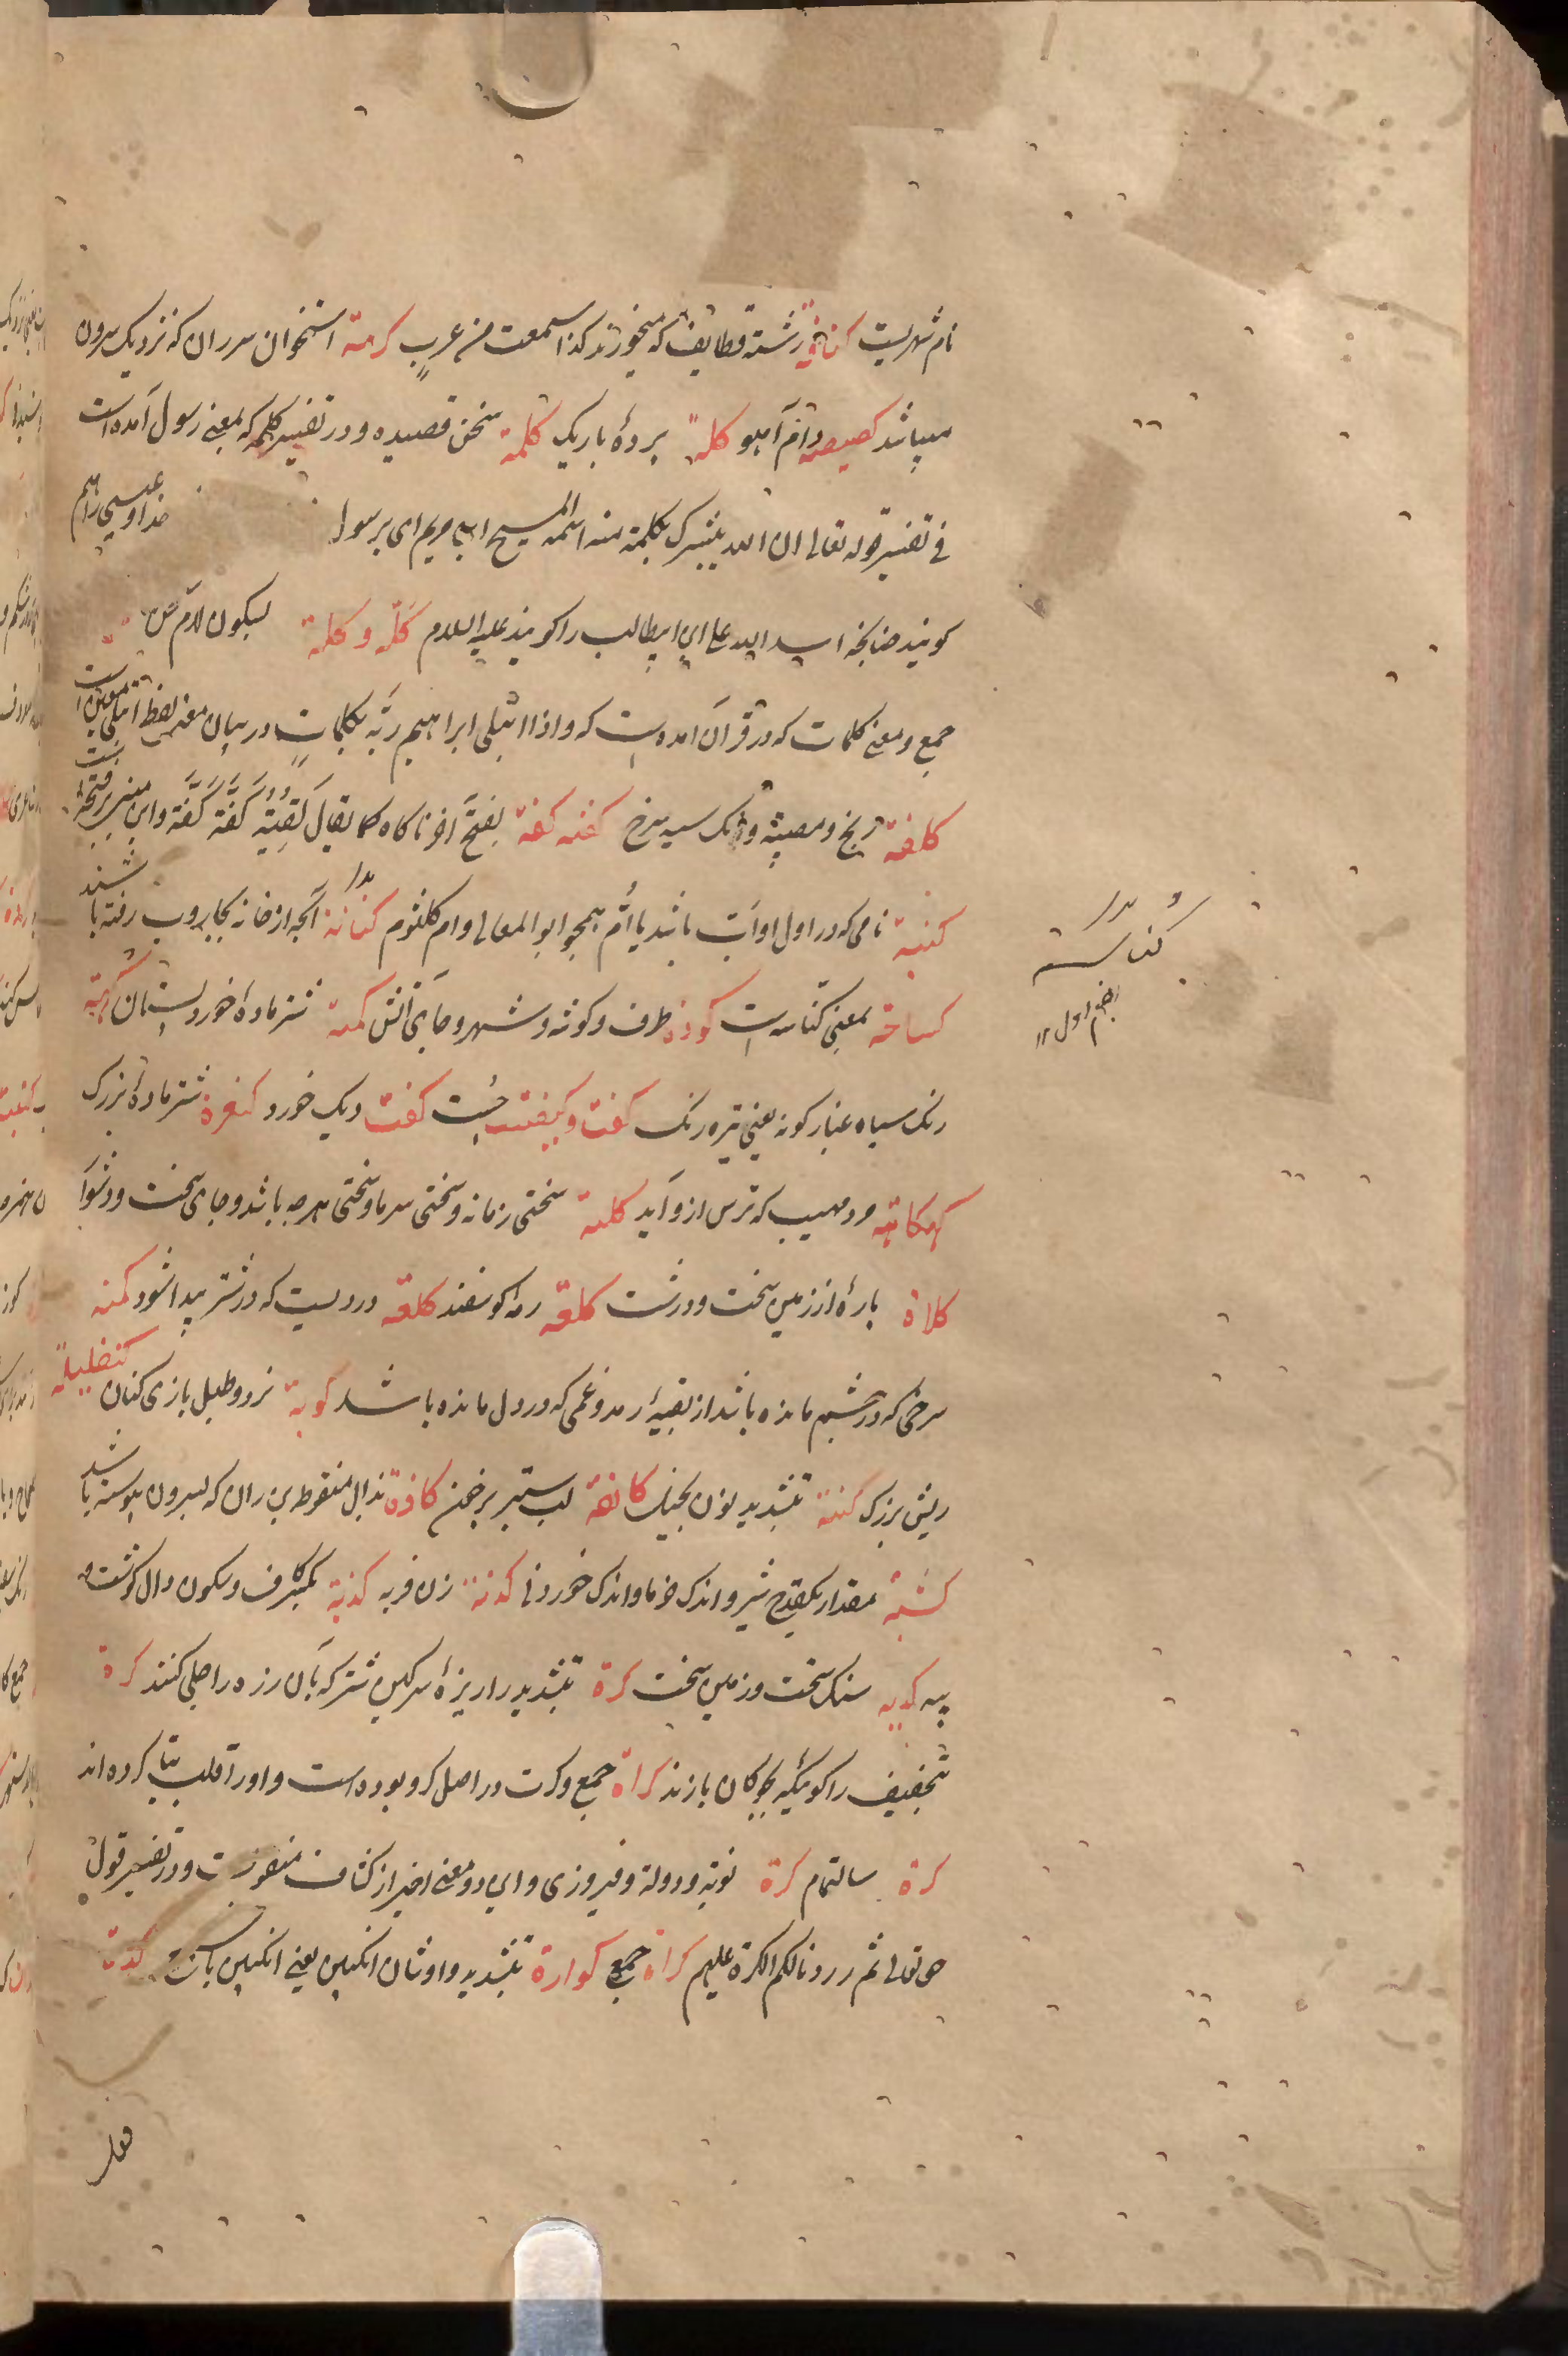 نام شهریست کنافة رشته قطایف که میخورند کذا سمعت من عرب کرمة استخوان سر ران که نزدیک سرون
میباشد کصیصه دام آهو کلة پردهٔ باریک کلمة سخن قصیده و در تفسیر کلمه که بمعنی رسول آمده است
فی تفسیر قوله تعالی ان الله یبشرک بکلمة منه اسمه المسیح ابن مریم ای برسول خدا و عیسی را هم
کویند چنانچه اسد الله علی ابن ابیطالب را کویند علیه السلام کلّة و کلمة بسکون لام
جمع و معنی کلمات که در قرآن آمده است که و اذا ابتلی ابراهیم ربّه بکلمات در بیان معنی لفظ ابتلی معین است
کلفة رنج و مصیبة و رنک سیه سرخ کفه کفة بفتح آخر ناکاه کما یقال لقیته کفّة کفّة و این مبنی بر فتحه است
کنیة نامی که در اول او اب باشد یا اُم همچو ابوالمعالی و ام کلثوم کنانة آنچه از خانه بجاروب رفته باشند
کساحة بمعنی کناسه است کورة طرف و کوشه و شهر و جای آتش کمشة شتر ماده خورد پستان کهبة
رنک سیاه غبار کونه یعنی تیره رنک کفت و کیفت چُست کفت دیک خورد کنعرة شتر ماده بزرک
کهکاهة مرد مهیب که ترس ازو آید کلبة سختی زمانه و سختی سرما و سختی هرچه باشد و جای سخت و دشوار
کلاة پارهٔ از زمین سخت و درشت کلعة رمهٔ کوسفند کلعة دردیست که در شتر پیدا شود کمنه
سرخی که در چشم مانده باشد از بقیهٔ رمد و غمی که در دل مانده باشد کوبة نرد و طبل بازی کنان کنفلیلة
ریش بزرک کنة بتشدید نون لب ستبر کاذة بذال منقوط بن ران که بیرون پیوسته باشد
کثبة مقدار یکقدح شیر و اندک خرما و اندک خوردنی کدنة زن فربه کدنة بکسر کاف و سکون دال کوشت و
پیه کدیه سنک سخت و زمین سخت کرة بتشدید را ریزهٔ سرکین شتر که بآن زره را جلی کنند کرة
بتخفیف را کوی که بچوکان بازند کراة جمع و کرت در اصل کرو بوده است و او را قلب بتا کرده اند
کرة سالتمام کرة نوبة و دولة و فیروزی و این دو معنی اخیر از کشاف منقولست و در تفسیر قول
حق تعالی ثم رددنا لکم الکرة علیهم کراة جمع کوارة بتشدید واو شان انکبین یعنی انکبین با شمع کدة
کناسه
بضم اول ۱۲